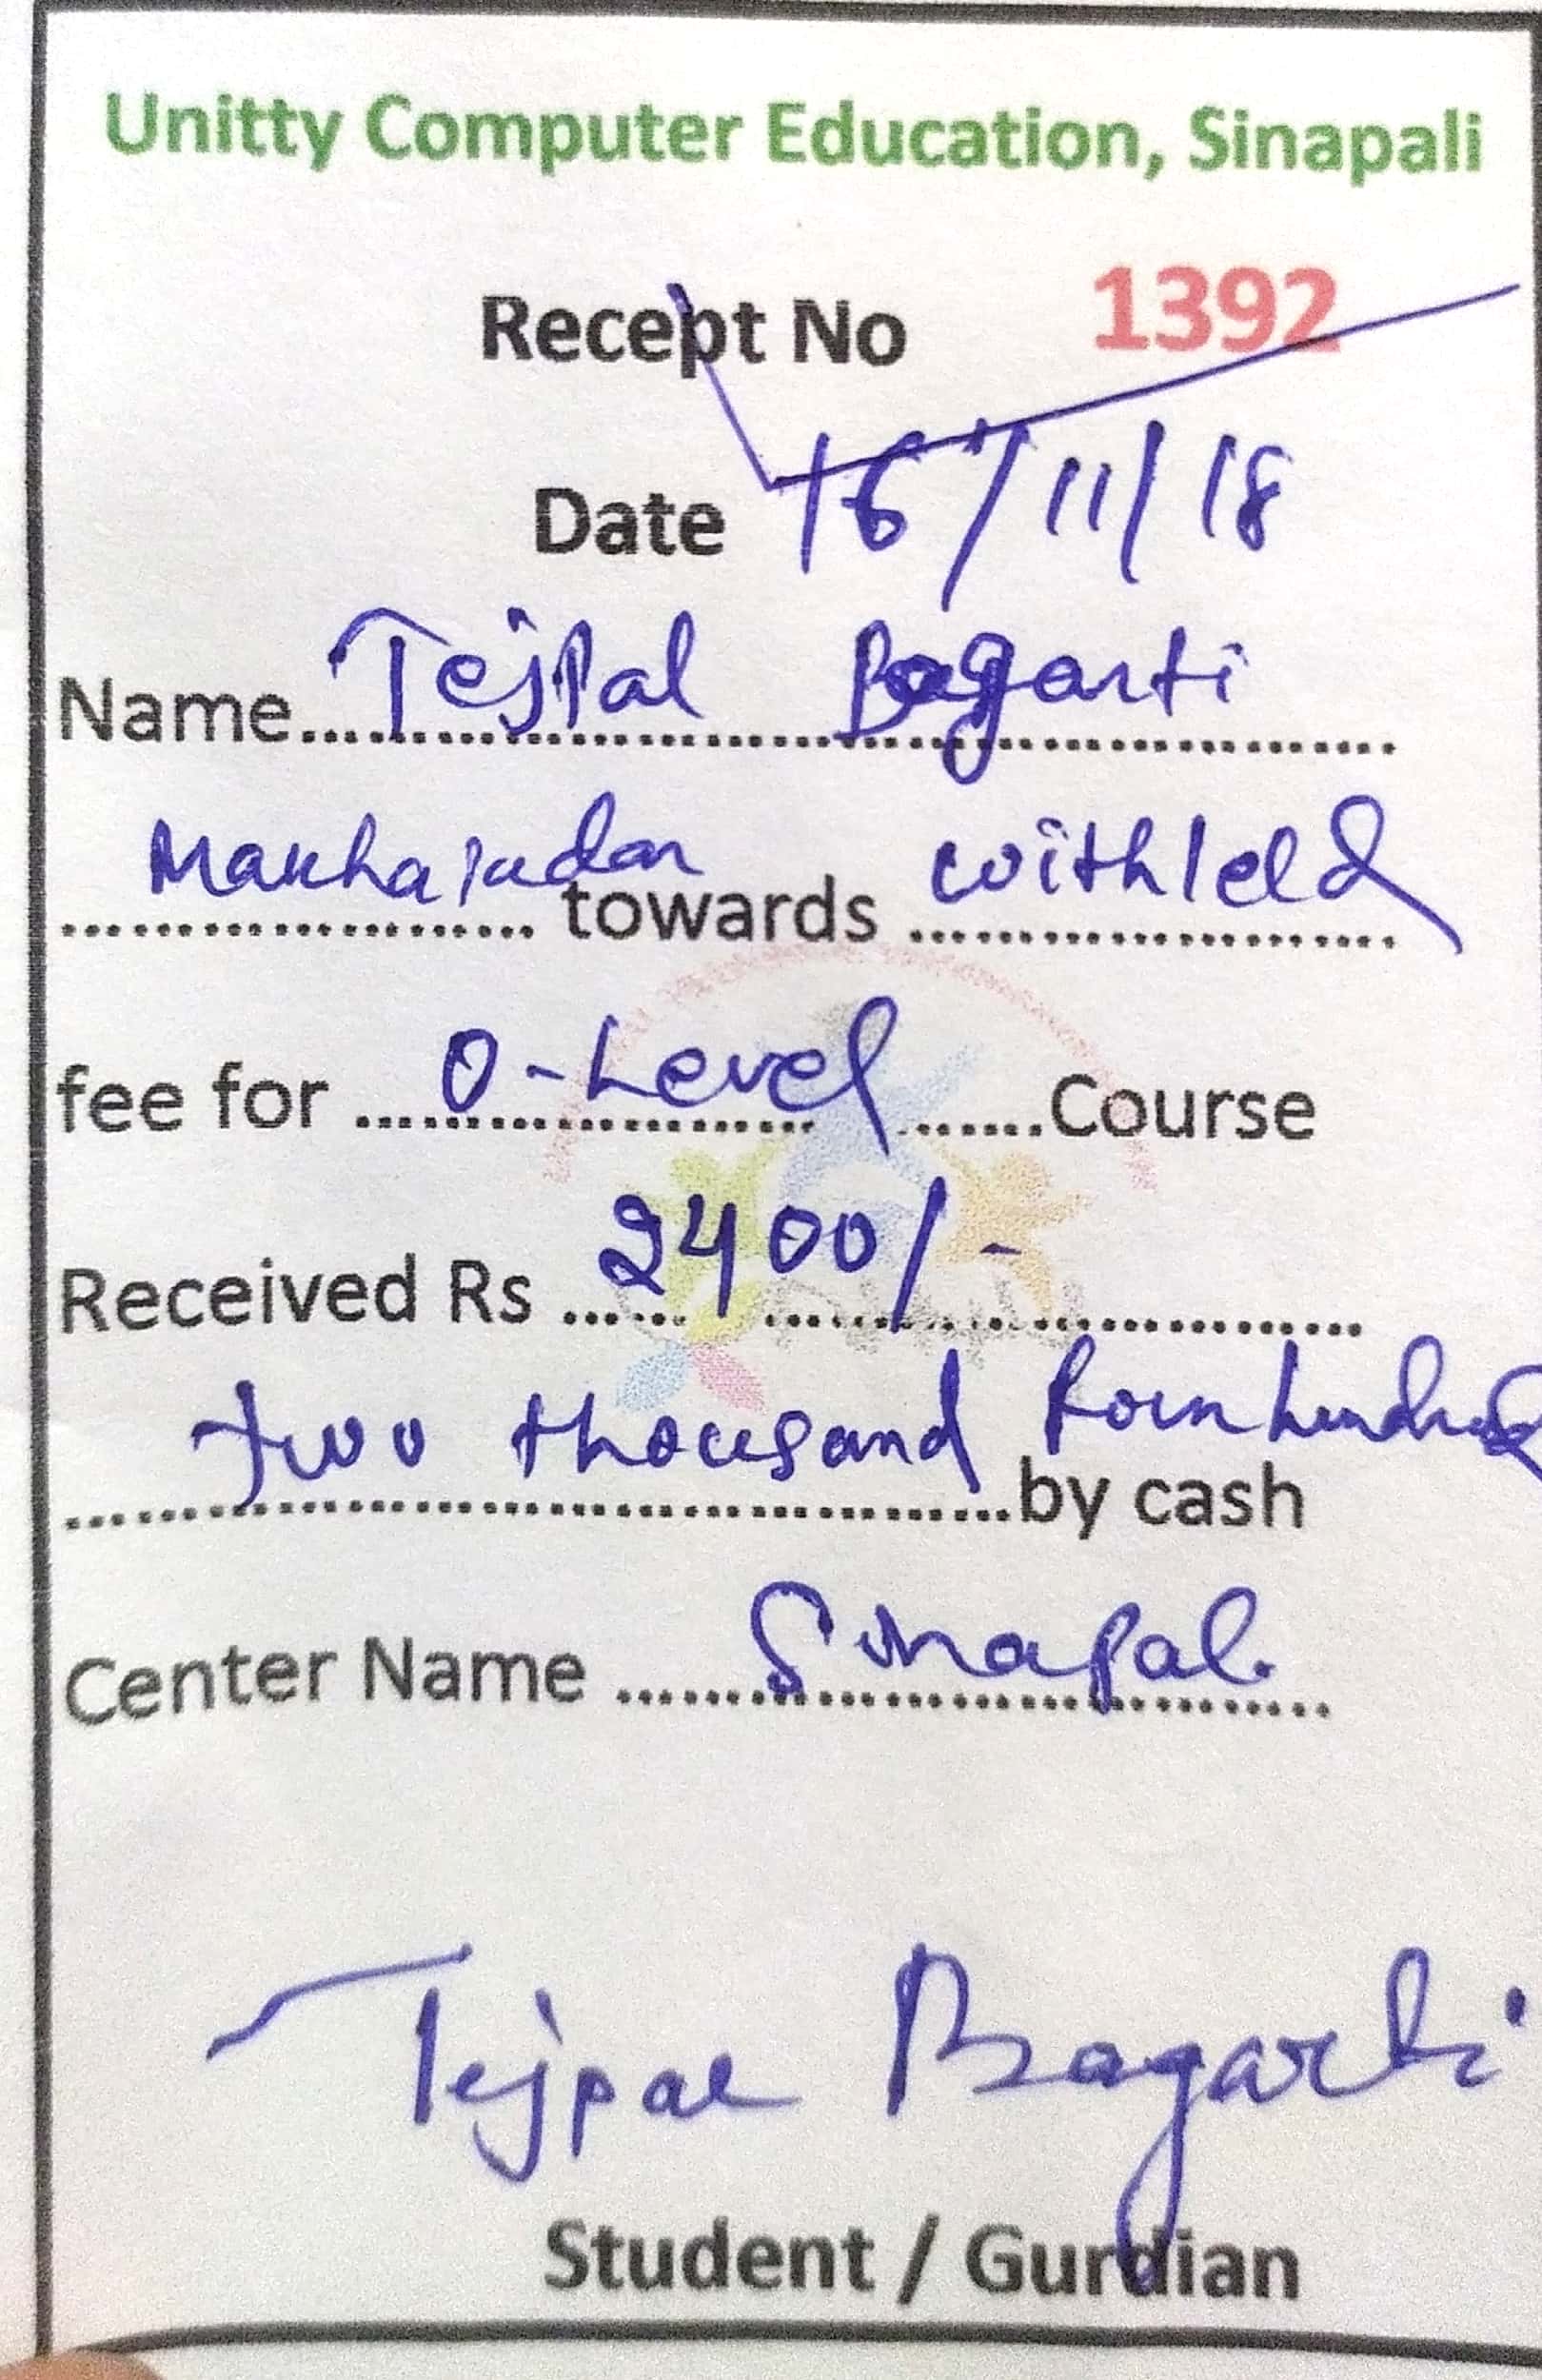 Unitty Computer Education, Sinapali
Recept No 1392
Date 16/11/18
Name Tejpal Bagarti
towards
fee for O-Level Course
Received Rs 2400/-
two thousand four hundred
by cash
Center Name Sinapali
Tejpal Bagarti
Student / Gurdian